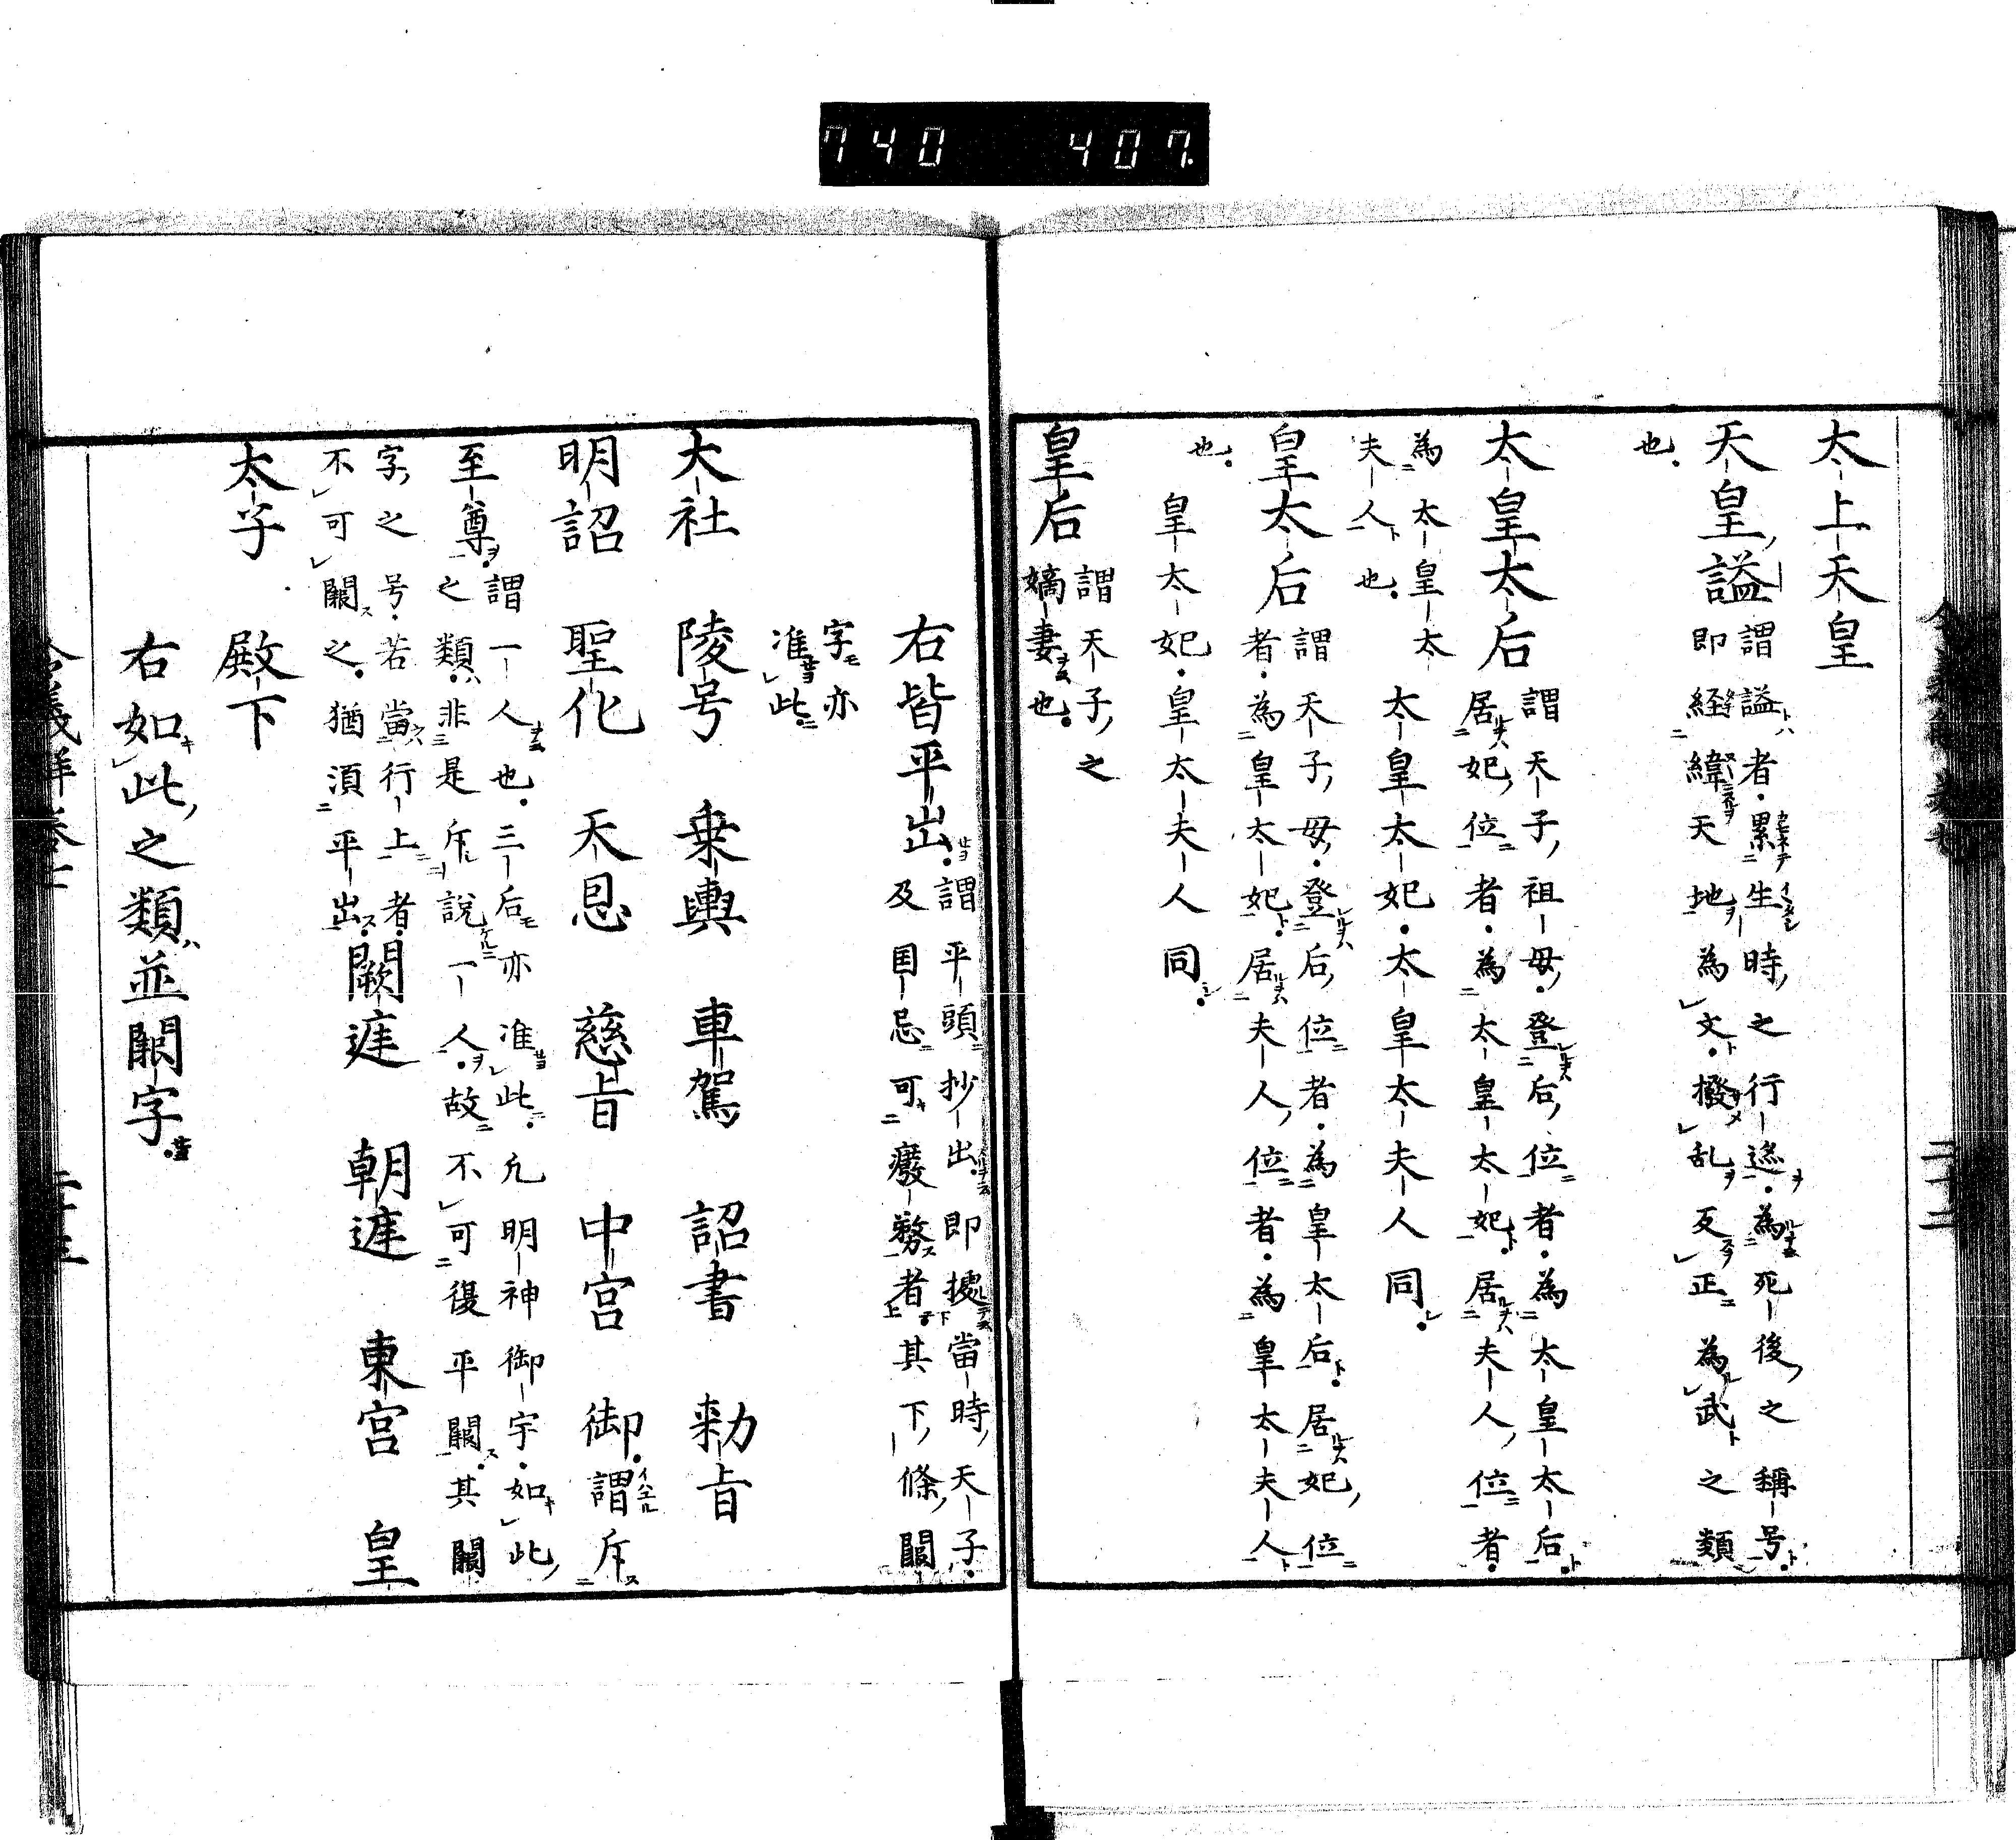 740 407.
太上天皇
天皇謚謂謚者累生時之行迹為死後之稱号
即経緯天地為文撥乱反正為武之類
也
太皇太后謂天子祖母登后位者為太皇太后
居妃位者為太皇太妃居夫人位者
為太皇太
夫人也
太皇太妃太皇太夫人同
皇太后謂天子母登后位者為皇太后居妃位
者為皇太妃居夫人位者為皇太夫人
也
皇太妃皇太夫人同
皇后謂天子之
嫡妻也
右皆平出謂平頭抄出即據當時天子
及国忌可癈務者其下條闕
字亦
准此
大社 陵号 乗輿 車駕 詔書 勅旨
明詔 聖化 天恩 慈旨 中宮 御謂斥
至尊謂一人也三后亦准此凢明神御宇如此
之類非是斥説一人故不可復平闕其闕
字之号若當行上者
不可闕之猶湏平出闕遅 朝遅 東宮 皇
太子 殿下
右如此之類並闕字